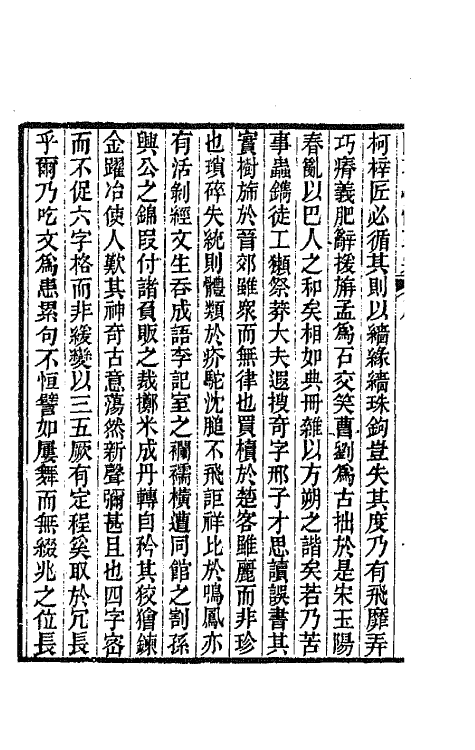 柯梓匠必循其則以繢緣繢珠鉤豈失其度乃有飛靡弄
巧瘠義肥辭援旃孟爲石交笑曹劉爲古拙於是宋玉陽
春亂以巴人之和矣相如典冊雜以方朔之諧矣若乃苦
事蟲鐫徒工獺祭莽大夫遐搜奇字邢子才思讀誤書其
實樹旆於晉郊雖衆而無律也買櫝於楚客雖麗而非珍
也瑣碎失統則體類於疥駝沈膇不飛詎祥比於鳴鳳亦
有活剝經文生吞成語李記室之襴襦橫遭同館之割孫
興公之錦叚付諸負販之裁擲米成丹轉自矜其狡獪鍊
金躍冶使人歎其神奇古意蕩然新聲彌甚且也四字密
而不促六字格而非緩變以三五厥有定程奚取於冗長
乎爾乃吃文爲患累句不恒譬如屢舞而無綴兆之位長